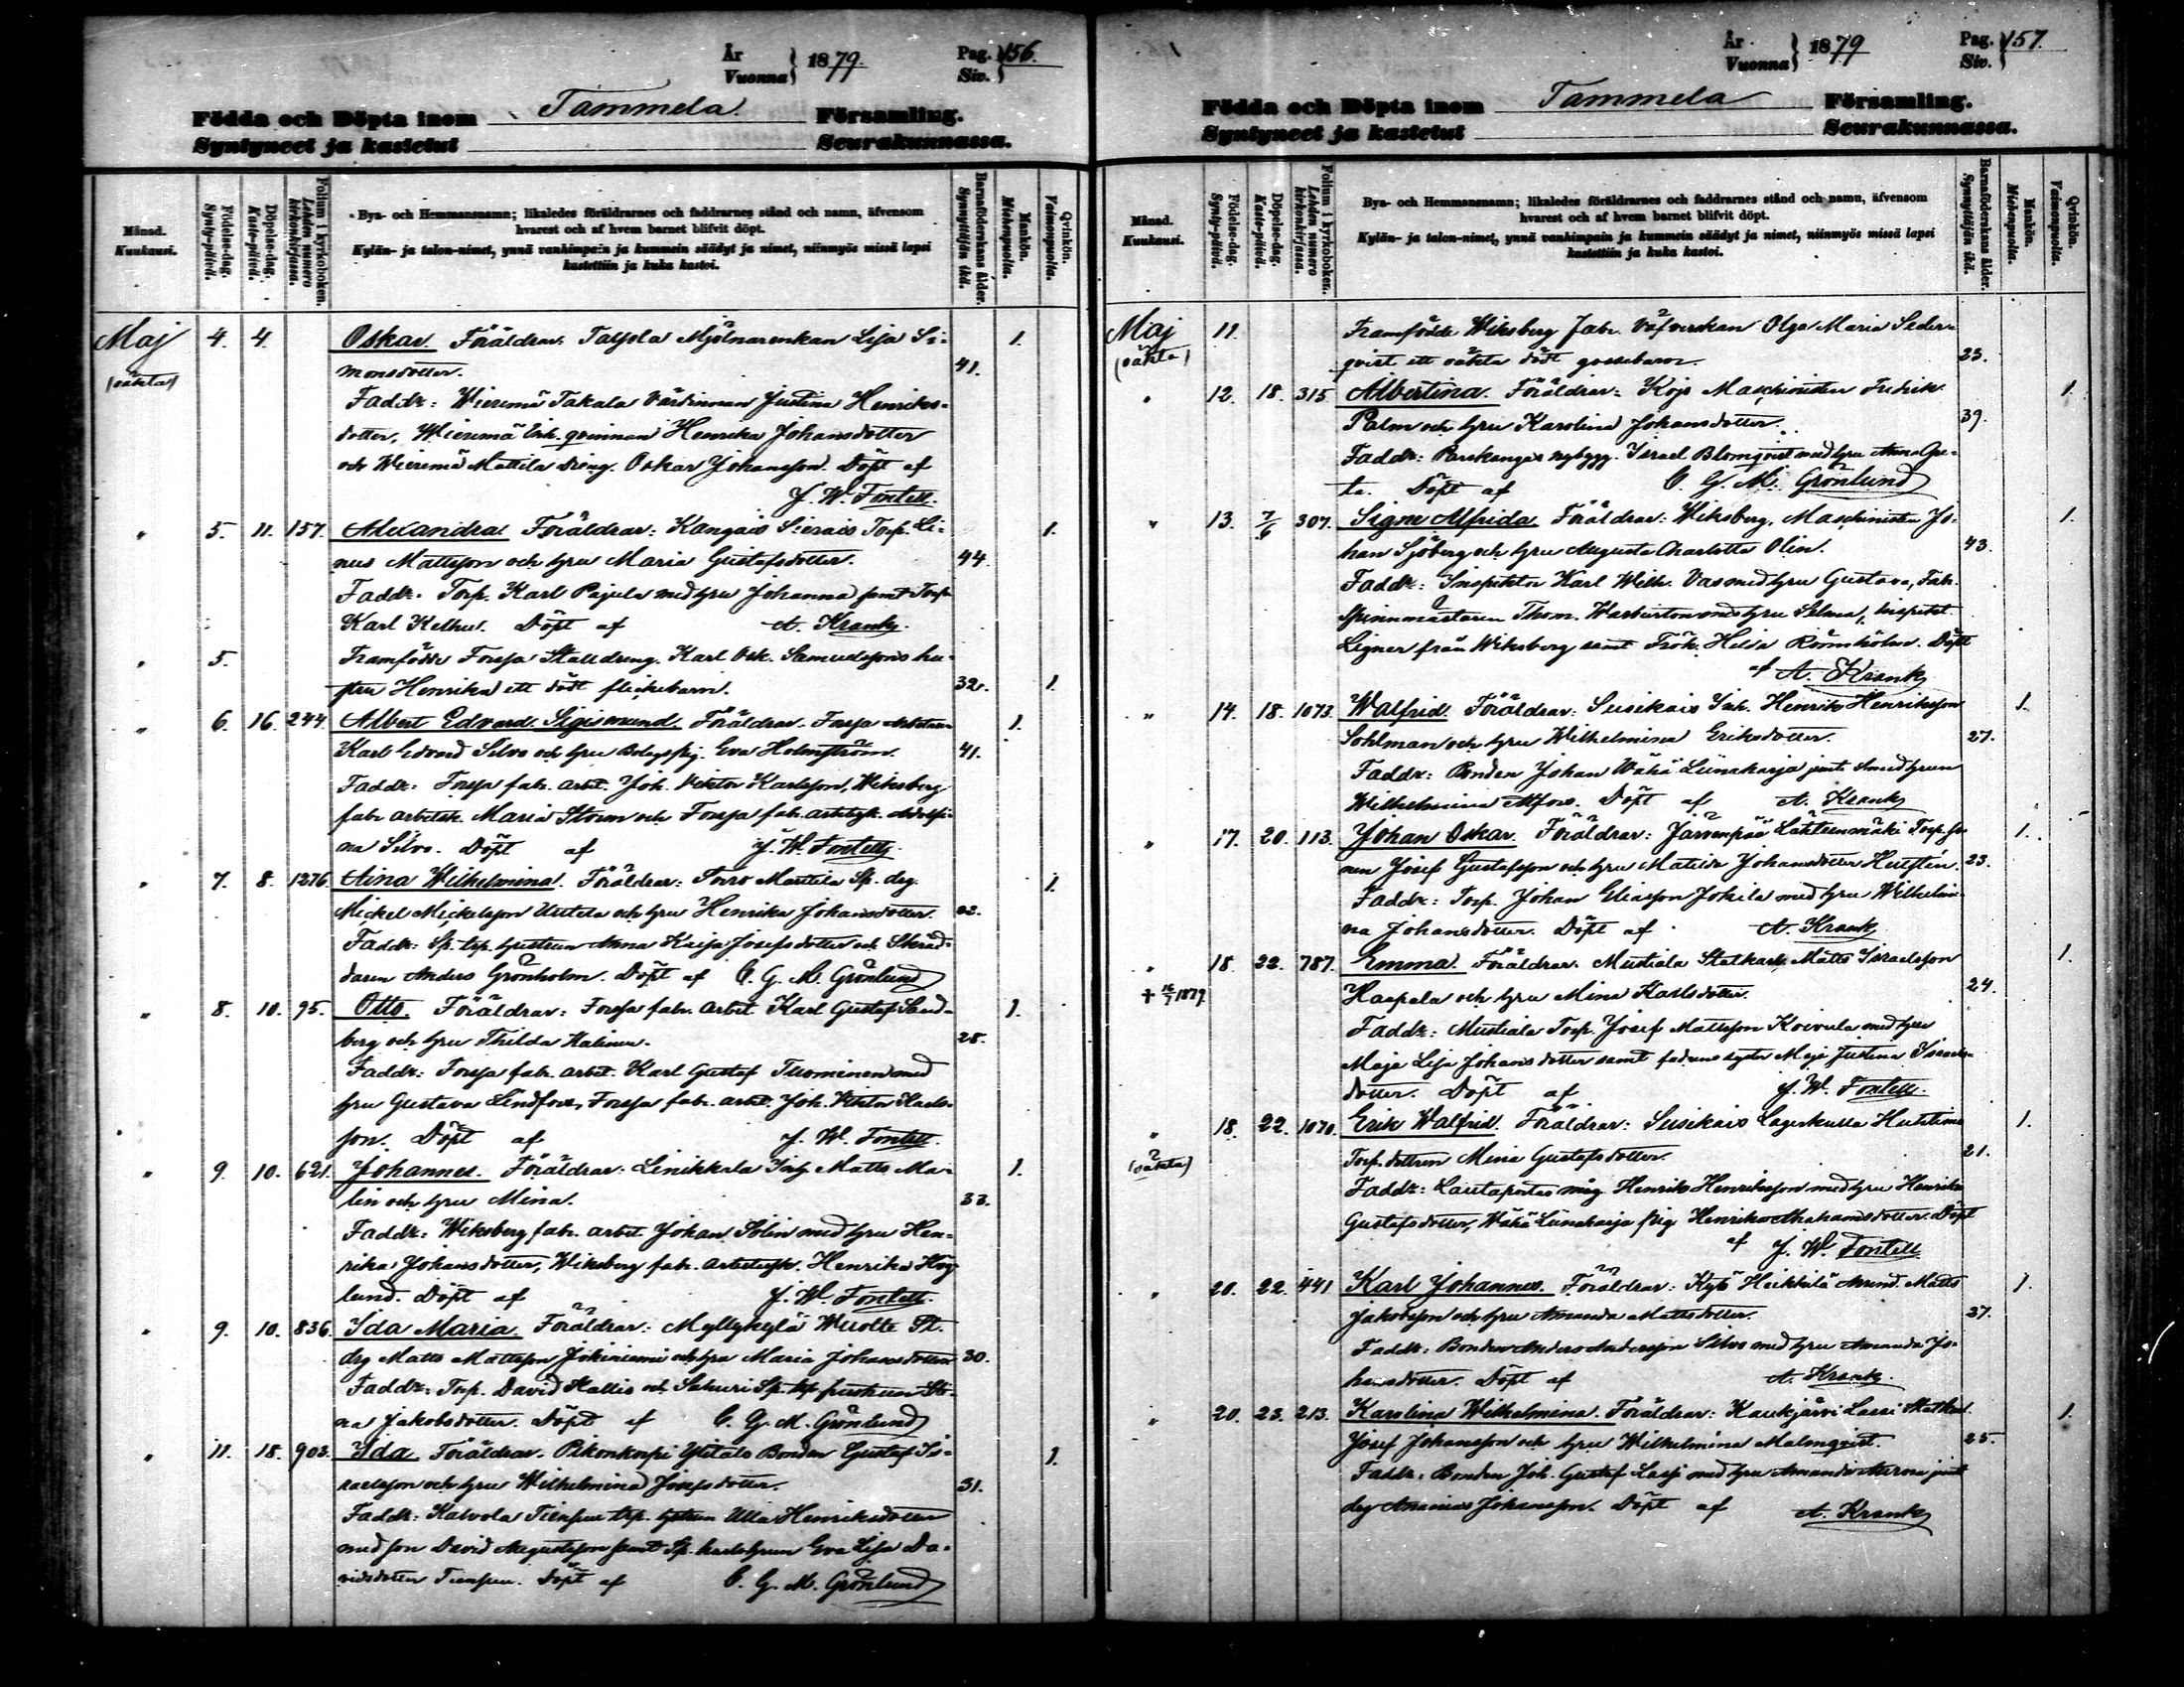 År
Vuonna } 1879. Pag. Siv. } 156.
Födda och Döpta inom Tammela. Församling.
Syntyneet ja kastetut Seurakunnassa.
Månad. Kuukausi.
Födelse-dag. Synty-päivä.
Döpelse-dag. Kaste-päivä.
Folium i kyrkoboken. Lehden numero kirkonkirjassa.
Bya- och Hemmansnamn; likaledes föräldrarnes och faddrarnes stånd och namn, äfvensom
hvarest och af hvem barnet blifvit döpt.
Kylän- ja talon-nimet, ynnä vanhimpain ja kummein säädyt ja nimet, niinmyös missä lapsi
kastettiin ja kuka kastoi.
Barnaföderskans ålder. Synnyttäjän ikä.
Mankön. Miehenpuolta.
Qvinkön. Vaimonpuolta.
Maj 4. 4. Oskar. Föräldrar: Mjölnarenkan Lisa Si- 1.
(oäkta) monsdotter. 41.
Faddr: Wieremä Takala Värdinnan Justina Henriks-
dotter, Wieremä Enk. qvinnan Henrika Johansdotter
och Wieremä Mattila dreng. Oskar Johansson. Döpt af
J. W. Fontell.
" 5. 11. 157. Alexandra. Föräldrar: Kangais Sierais Torp. Li- 1.
nus Mattsson och hru Maria Gustafsdotter. 44.
Faddr. Torp. Karl Pajula med hru Johanna samt Torp.
Karl Döpt af A. Krank.
" 5. Framfödde Forssa Stalldreng. Karl Osk. Samuelssons hu-
stru Henrika ett dödt flickebarn. 32. 1.
" 6. 16. 244. Albert Edvard Sigismund. Föräldrar. Forssa 1.
Karl Edvard Silvo och hru Eva Holmström. 41.
Faddr: Forssa fabr. arbet. Joh. Viktor Karlsson, Wiksberg
fabr arbetsk. Maria Storm och Forssa fab. arbetsk. Adolfi-
na Silvo. Döpt af J. W. Fontell.
" 7. 8. 1276. Aina Wilhelmina. Föräldrar: Torro Marttila Sp. drg. 1.
Mickel Mickelsson Uutela och hru Henrika Johansdotter.
Faddr: Sp. trp. hustrun Anna Kaisa Josefsdotter och Skräd-
daren Anders Grönholm. Döpt af C. G. M. Grönlund
" 8. 10. 95. Otto. Föräldrar: Forssa fabr. arbet. Karl Gustaf Sand- 1.
berg och hru Thilda Kalinen. 28.
Faddr: Forssa fabr. arbet. Karl Gustaf Tuominen med
hru Gustava Lindfors, Forssa fabr. arbet. Joh. Viktor Karls-
son. Döpt af J. W. Fontell.
" 9. 10. 621. Johannes. Föräldrar: Linikkala Inh. Matts Ma- 1.
lin och hru Mina. 33.
Faddr: Wiksberg fabr. arbet. Johan Solin med hru Hen-
rika Johansdotter, Wiksberg fabr. arbetersk. Henrika Hög-
lund. Döpt af J. W. Fontell.
" 9. 10. 836. Ida Maria. Föräldrar: Myllykylä Wuolte St.
drg Matts Mattsson Jokiniemi och hru Maria Johansdotter 30.
Faddr: Torp. David Kallis och Sp. trp. hustrun
na Jakobsdotter. Döpt af C. G. M. Grönlund
" 11. 18. 903. Ida. Föräldrar. Pikonkorpi Ylitalo Bonden Gustaf Is- 1.
raelsson och hru Wilhelmina Josefsdotter. 31.
Faddr: Kalvola trp. hstrun Ulla Henriksdotter
med son David Augustsson samt Sp. Eva Lisa Da-
vidsdotter Döpt af C. G. M. Grönlund
År
Vuonna } 1879 Pag. Siv. } 157.
Födda och Döpta inom Tammela Församling.
Syntyneet ja kastetut Seurakunnassa.
Månad. Kuukausi.
Födelse-dag. Synty-päivä.
Döpelse-dag. Kaste-päivä.
Folium i kyrkoboken. Lehden numero kirkonkirjassa.
Bya- och Hemmansnamn; likaledes föräldrarnes och faddrarnes stånd och namn, äfvensom
hvarest och af hvem barnet blifvit döpt.
Kylän- ja talon-nimet, ynnä vanhimpain ja kummein säädyt ja nimet, niinmyös missä lapsi
kastettiin ja kuka kastoi.
Barnaföderskans ålder. Synnyttäjän ikä.
Mankön. Miehenpuolta.
Qvinkön. Vaimonpuolta.
Maj 11. Framfödde Wiksberg Fabr. väfverskan Olga Maria Seder-
(oäkta) qvist ett oäkta dödt gossebarn. 23.
" 12. 18. 315 Albertina. Föräldrar: Kojo Maschinisten Fredrik 1.
Palm och hru Karolina Johansdotter. 39.
Faddr: nybygg. Israel Blomqvist med hru Anna Gre-
ta. Döpt af C. G. M. Grönlund
" 13. 7/6 307. Signe Alfrida. Föräldrar: Wiksberg, Maschinisten Jo- 1.
han Sjöberg och hru Augusta Charlotta Olin. 43.
Faddr: Inspektor Karl Wilh. Vas med hru Gustava, Fab.
Spinnmästaren Thom. Warburton med hru Selma, Inspekt
Ligner från Wiksberg samt Frök. Döpt
af A. Krank
" 14. 18. 1073. Walfrid. Föräldrar: Susikais Inh. Henrik Henriksson 1.
Sohlman och hru Wilhelmina Eriksdotter. 27.
Faddr: Bonden Johan Wähä Liunakarja jemte smedhrun
Wilhelmina Alfors. Döpt af A. Krank
" 17. 20. 113. Johan Oskar. Föräldrar: Järvenpää Lähteenmäki Torp. so- 1.
nen Josef Gustafsson och hru Matilda Johansdotter 23.
Faddr: Torp. Johan Eliasson Jokela med hru Wilhelmi-
na Johansdotter. Döpt af A. Krank
" 18. 22. 787. Emma. Föräldrar. Mustiala Statkarl Matts Israelsson 1.
+ 16/7 1879 Haapala och hru Mina Karlsdotter. 24.
Faddr: Mustiala Torp. Josef Mattsson Koivula med hru
Maja Lisa Johansdotter samt fadrens syster Maja Justina Israels-
dotter. Döpt af J. W. Fontell.
" 18. 22. 1070. Erik Walfrid. Föräldrar: Susikais Lagerkulla 1.
(oäkta) Torp. dottren Mina Gustafsdotter. 21.
Faddr: måg Henrik Henriksson med hru Henrika
Gustafsdotter, Wähä Liunakarja pig. Henrika Abrahamsdotter. Döpt
af J. W. Fontell
" 20. 22. 441 Karl Johannes. Föräldrar: Heikkilä Arrend. Matts 1.
Jakobsson och hru Amanda Mattsdotter. 37.
Faddr: Bonden Anders Andersson Silvo med hru Amanda Jo-
hansdotter. Döpt af A. Krank.
" 20. 23. 213. Karolina Wilhelmina. Föräldrar: Kaukjärvi Lassi Statkarl. 1.
Josef Johansson och hru Wilhelmina Malmqvist. 25.
Faddr: Bonden Joh. Gustaf Lassi med hru Amanda jemte
drg Ananias Johansson. Döpt af A. Krank